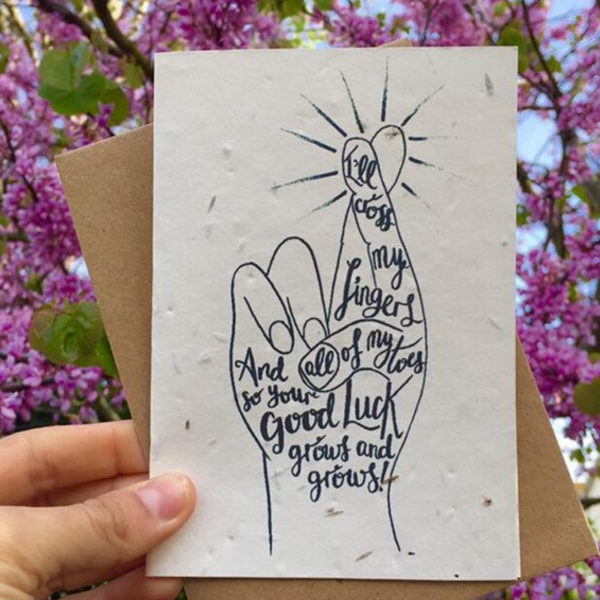 I'll
cross
my
fingers
all of my toes
And
so your
Good Luck
grows and
grows!